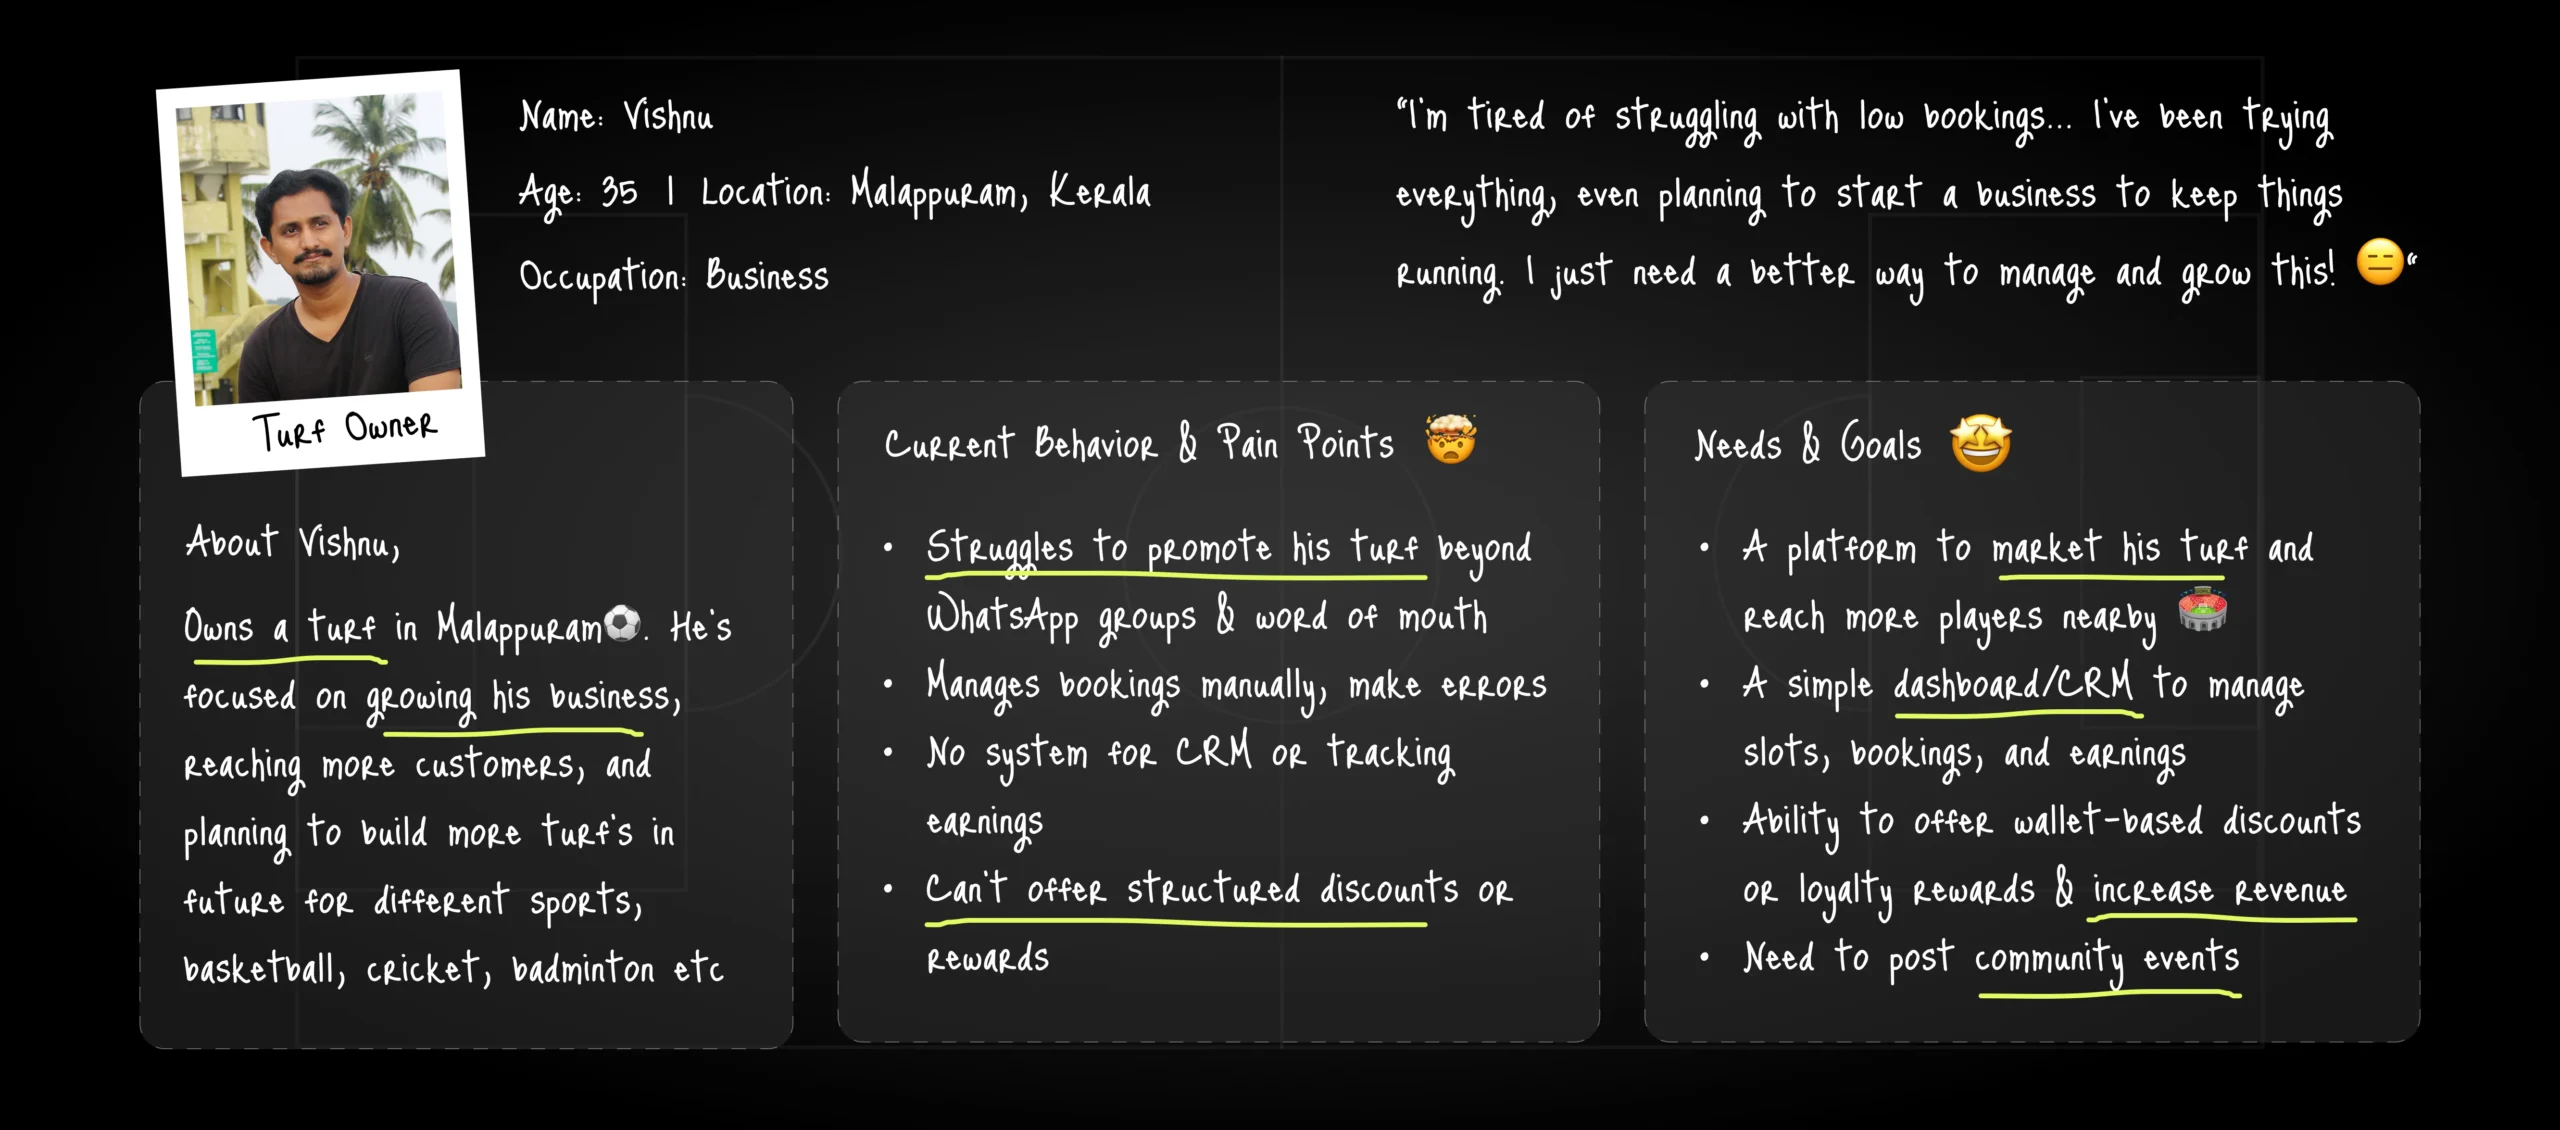 Name: Vishnu
Age: 35 | Location: Malappuram, Kerala
Occupation: Business
"I'm tired of struggling with low bookings... I've been trying
everything, even planning to start a business to keep things
running. I just need a better way to manage and grow this! 😑"
Turf Owner
About Vishnu,
Owns a turf in Malappuram⚽. He's
focused on growing his business,
reaching more customers, and
planning to build more turf's in
future for different sports,
basketball, cricket, badminton etc
Current Behavior & Pain Points 🤯
• Struggles to promote his turf beyond
WhatsApp groups & word of mouth
• Manages bookings manually, make errors
• No system for CRM or tracking
earnings
• Can't offer structured discounts or
rewards
Needs & Goals 🤩
• A platform to market his turf and
reach more players nearby 🏟️
• A simple dashboard/CRM to manage
slots, bookings, and earnings
• Ability to offer wallet-based discounts
or loyalty rewards & increase revenue
• Need to post community events